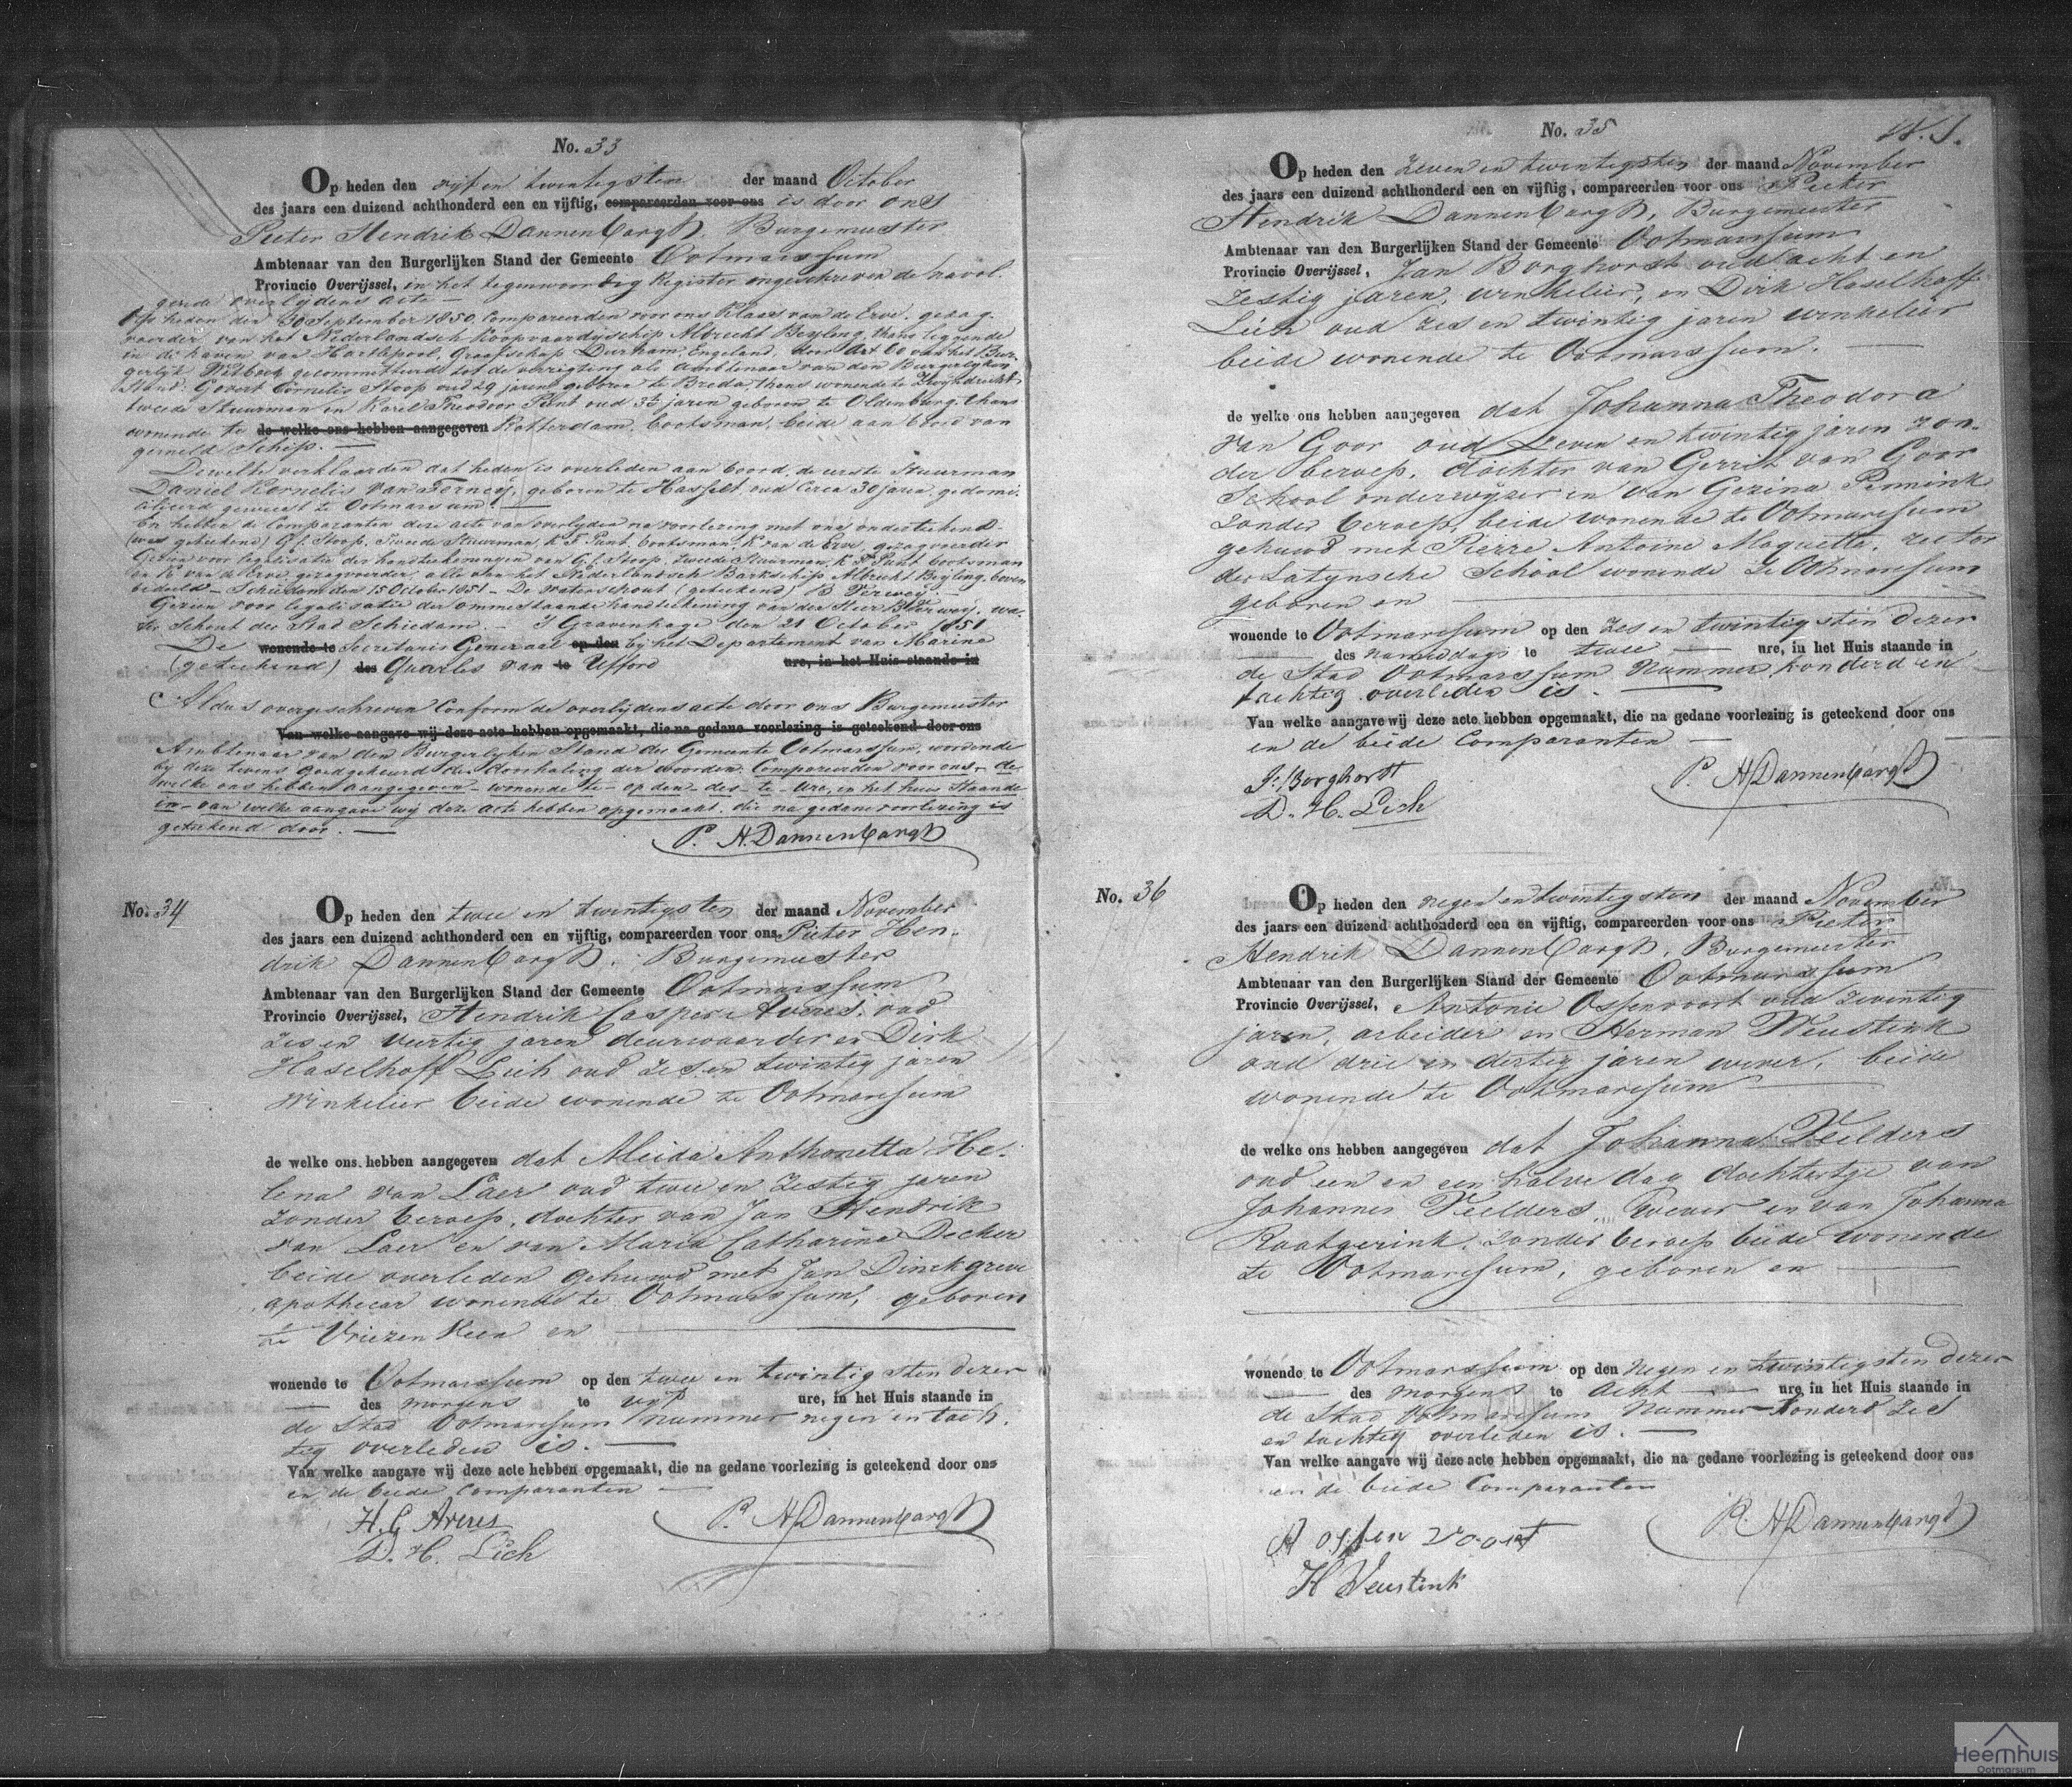 No. 33
Op heden den vijf en twintigsten der maand October
des jaars een duizend achthonderd een en vijftig, compareerden voor ons is door ons
Pieter Hendrik Dannenbargh, Burgemeester
Ambtenaar van den Burgerlijken Stand der Gemeente Ootmarssum
Provincie Overijssel, in het tegenwoordig Register ingeschreven de navol-
gende overlijdens acte
Op heden den 30 September 1850, Compareerden voor ons Klaas van de Erve, gezag-
voerder van het Nederlandsch Koopvaardyschip Albrecht Beyling, thans liggende
in de haven van Hartlepool, Graafschap Durham, Engeland, door Art 60 van het Bur-
gerlijk Wetboek gecommitteerd tot de verrigting als Ambtenaar van den Burgerlyken
Stand. Govert Cornelis Stoop oud 29 jaren geboren te Breda thans wonende te Zwyndrecht
tweede Stuurman en Karel Theodoor Punt oud 35 jaren geboren te Oldenburg, thans
wonende te de welke ons hebben aangegeven Rotterdam, bootsman, beide aan boord van
gemeld Schip. —
Dewelke verklaarden dat heden is overleden aan boord, de eerste Stuurman
Daniel Kornelis van Ferney, geboren te Hasselt, oud Circa 30 jaren, gedomi-
cilieerd geweest te Ootmarsum. —
En hebben de Comparanten deze acte van overlyden na voorlezing met ons onderteekend
(was geteekend) G.C. Stoop, Tweede Stuurman, K. T. Punt, bootsman, K van de Erve, gezagvoerder
Gezien voor legalisatie der handteekeningen van G.C. Stoop, tweede Stuurman, K T Punt bootsman
en K van de Erve, gezagvoerder, alle van het Nederlandsch Barkschip Albrecht Beyling, boven
bedoeld – Schiedam den 15 October 1851 – De Waterschout (geteekend) B Verwey –
Gezien voor legalisatie der ommestaande handteekening van den Heer B Verwey, wa-
ter Schout der Stad Schiedam. – S Gravenhage den 21 October 1851
De wonende te Secretaris Generaal op den by het Departement van Marine
(geteekend) des Quarles van te Ufford ure, in het Huis staande in
Aldus overgeschreven Conform de overlydensacte door ons Burgemeester
Van welke aangave wij deze acte hebben opgemaakt, die na gedane voorlezing is geteekend door ons
Ambtenaar van den Burgerlyken Stand der Gemeente Ootmarssum, wordende
by deze tevens goedgekeurd de doorhaling der woorden: Compareerden voor ons – de
welke ons hebben aangegeven – wonende te – op den – des – te – ure, in het huis staande
in – van welke aangave wy deze acte hebben opgemaakt, die na gedane voorlezing is
geteekend door. —
P. H. Dannenbargh
No. 34
Op heden den twee en twintigsten der maand November
des jaars een duizend achthonderd een en vijftig, compareerden voor ons Pieter Hen-
drik Dannenbargh, Burgemeester
Ambtenaar van den Burgerlijken Stand der Gemeente Ootmarssum
Provincie Overijssel, Hendrik Casper Averes, oud
zes en veertig jaren deurwaarder en Dirk
Haselhoff Lich oud zes en twintig jaren
Winkelier beide wonende te Ootmarssum
de welke ons hebben aangegeven dat Aleida Anthonetta He-
lena van Laer oud twee en zestig jaren
zonder beroep, dochter van Jan Hendrik
van Laer en van Maria Catharina Decker
beide overleden gehuwd met Jan Dinckgreve
apothecar wonende te Ootmarssum, geboren
te Vriezenveen en —
wonende te Ootmarssum op den twee en twintigsten dezer
— des morgens te vyf ure, in het Huis staande in
de Stad Ootmarssum nummer negen en tach-
tig overleden is. —
Van welke aangave wij deze acte hebben opgemaakt, die na gedane voorlezing is geteekend door ons
en de beide Comparanten —
H. C. Averes
D. H. Lich
P. H. Dannenbargh
No. 35
Op heden den zeven en twintigsten der maand November
des jaars een duizend achthonderd een en vijftig, compareerden voor ons Pieter
Hendrik Dannenbargh, Burgemeester
Ambtenaar van den Burgerlijken Stand der Gemeente Ootmarssum
Provincie Overijssel, Jan Borghorst oud acht en
zestig jaren, winkelier, en Dirk Haselhoff
Lich oud zes en twintig jaren winkelier
beide wonende te Ootmarssum. —
de welke ons hebben aangegeven dat Johanna Theodora
van Goor oud zeven en twintig jaren zon-
der beroep, dochter van Gerrit van Goor
School onderwyzer en van Gezina Pennink
zonder beroep, beide wonende te Ootmarssum
gehuwd met Pierre Antoine Moquette, rector
der Latynsche School wonende te Ootmarssum
geboren en —
wonende te Ootmarssum op den zes en twintigsten dezer
— des namiddags te twee — ure, in het Huis staande in
de Stad Ootmarssum Nummer honderd en
tachtig overleden is. —
Van welke aangave wij deze acte hebben opgemaakt, die na gedane voorlezing is geteekend door ons
en de beide Comparanten —
J. Borghorst
D. H. Lich
P. H Dannenbargh
No. 36
Op heden den negen en twintigsten der maand November
des jaars een duizend achthonderd een en vijftig, compareerden voor ons Pieter
Hendrik Dannenbargh, Burgemeester
Ambtenaar van den Burgerlijken Stand der Gemeente Ootmarssum
Provincie Overijssel, Antonie Ossenvoort oud twintig
jaren, arbeider en Herman Weustink
oud drie en dertig jaren wever, beide
wonende te Ootmarssum —
de welke ons hebben aangegeven dat Johanna Veelders
oud een en een halve dag dochtertje van
Johannes Veelders, Wever en van Johanna
Raatgerink, zonder beroep beide wonende
te Ootmarssum, geboren en —
wonende te Ootmarssum op den negen en twintigsten dezer
— des morgens te acht — ure, in het Huis staande in
de Stad Ootmarssum Nummer honderd zes
en tachtig overleden is. —
Van welke aangave wij deze acte hebben opgemaakt, die na gedane voorlezing is geteekend door ons
en de beide Comparanten
A ossen voort
H Weustink
P. H Dannenbargh
Heemhuis
Ootmarsum